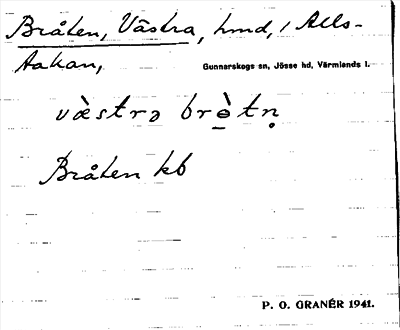 Bråten, Västra, hmd, i Alls-
takan,
Gunnarskogs sn, Jösse hd, Värmlands l.
væ̀strə brɔ̀tṇ
Bråten kb
P. O. GRANÉR 1941.